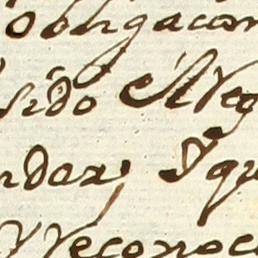 obligacion
sido el Neg
ndar, y qu
Reconoce